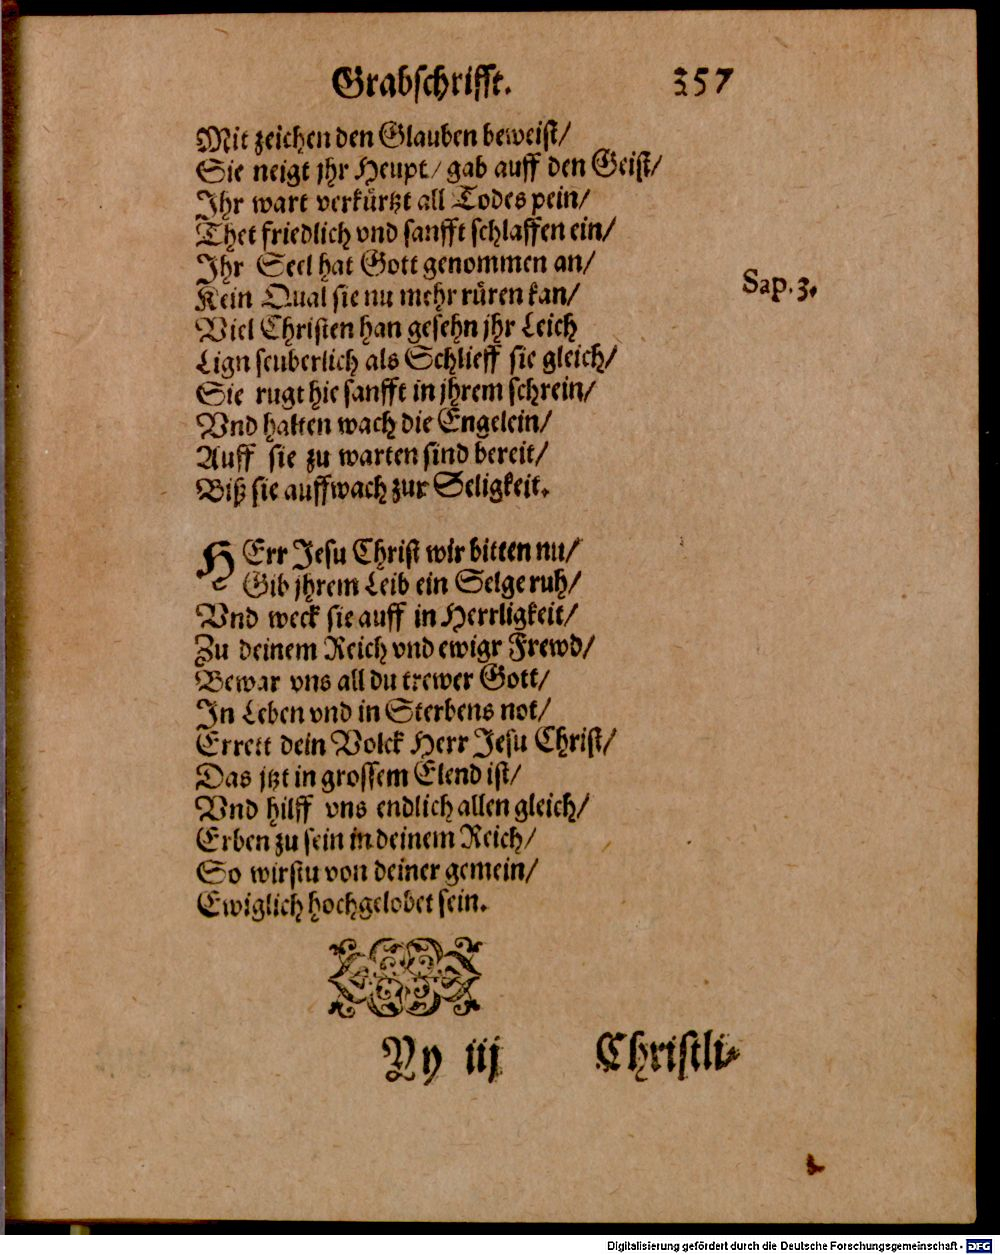 Grabschrifft. 357
Mit zeichen den Glauben beweist/
Sie neigt jhr Heupt/ gab auff den Geist/
Ihr wart verkürtzt all Todes pein/
Thet friedlich vnd sanfft schlaffen ein/
Ihr Seel hat Gott genommen an/
Kein Qual sie nu mehr rüren kan/ Sap. 3.
Viel Christen han gesehn jhr Leich
Lign seuberlich als Schlieff sie gleich/
Sie rugt hie sanfft in jhrem schrein/
Vnd halten wach die Engelein/
Auff sie zu warten sind bereit/
Biß sie auffwach zur Seligkeit.
HErr Jesu Christ wir bitten nu/
Gib jhrem Leib ein Selge ruh/
Vnd weck sie auff in Herrligkeit/
Zu deinem Reich vnd ewigr Frewd/
Bewar vns all du trewer Gott/
In Leben vnd in Sterbens not/
Errett dein Volck Herr Jesu Christ/
Das jtzt in grossem Elend ist/
Vnd hilff vns endlich allen gleich/
Erben zu sein in deinem Reich/
So wirstu von deiner gemein/
Ewiglich hochgelobet sein.
Yy iij Christli-
Digitalisierung gefördert durch die Deutsche Forschungsgemeinschaft - DFG